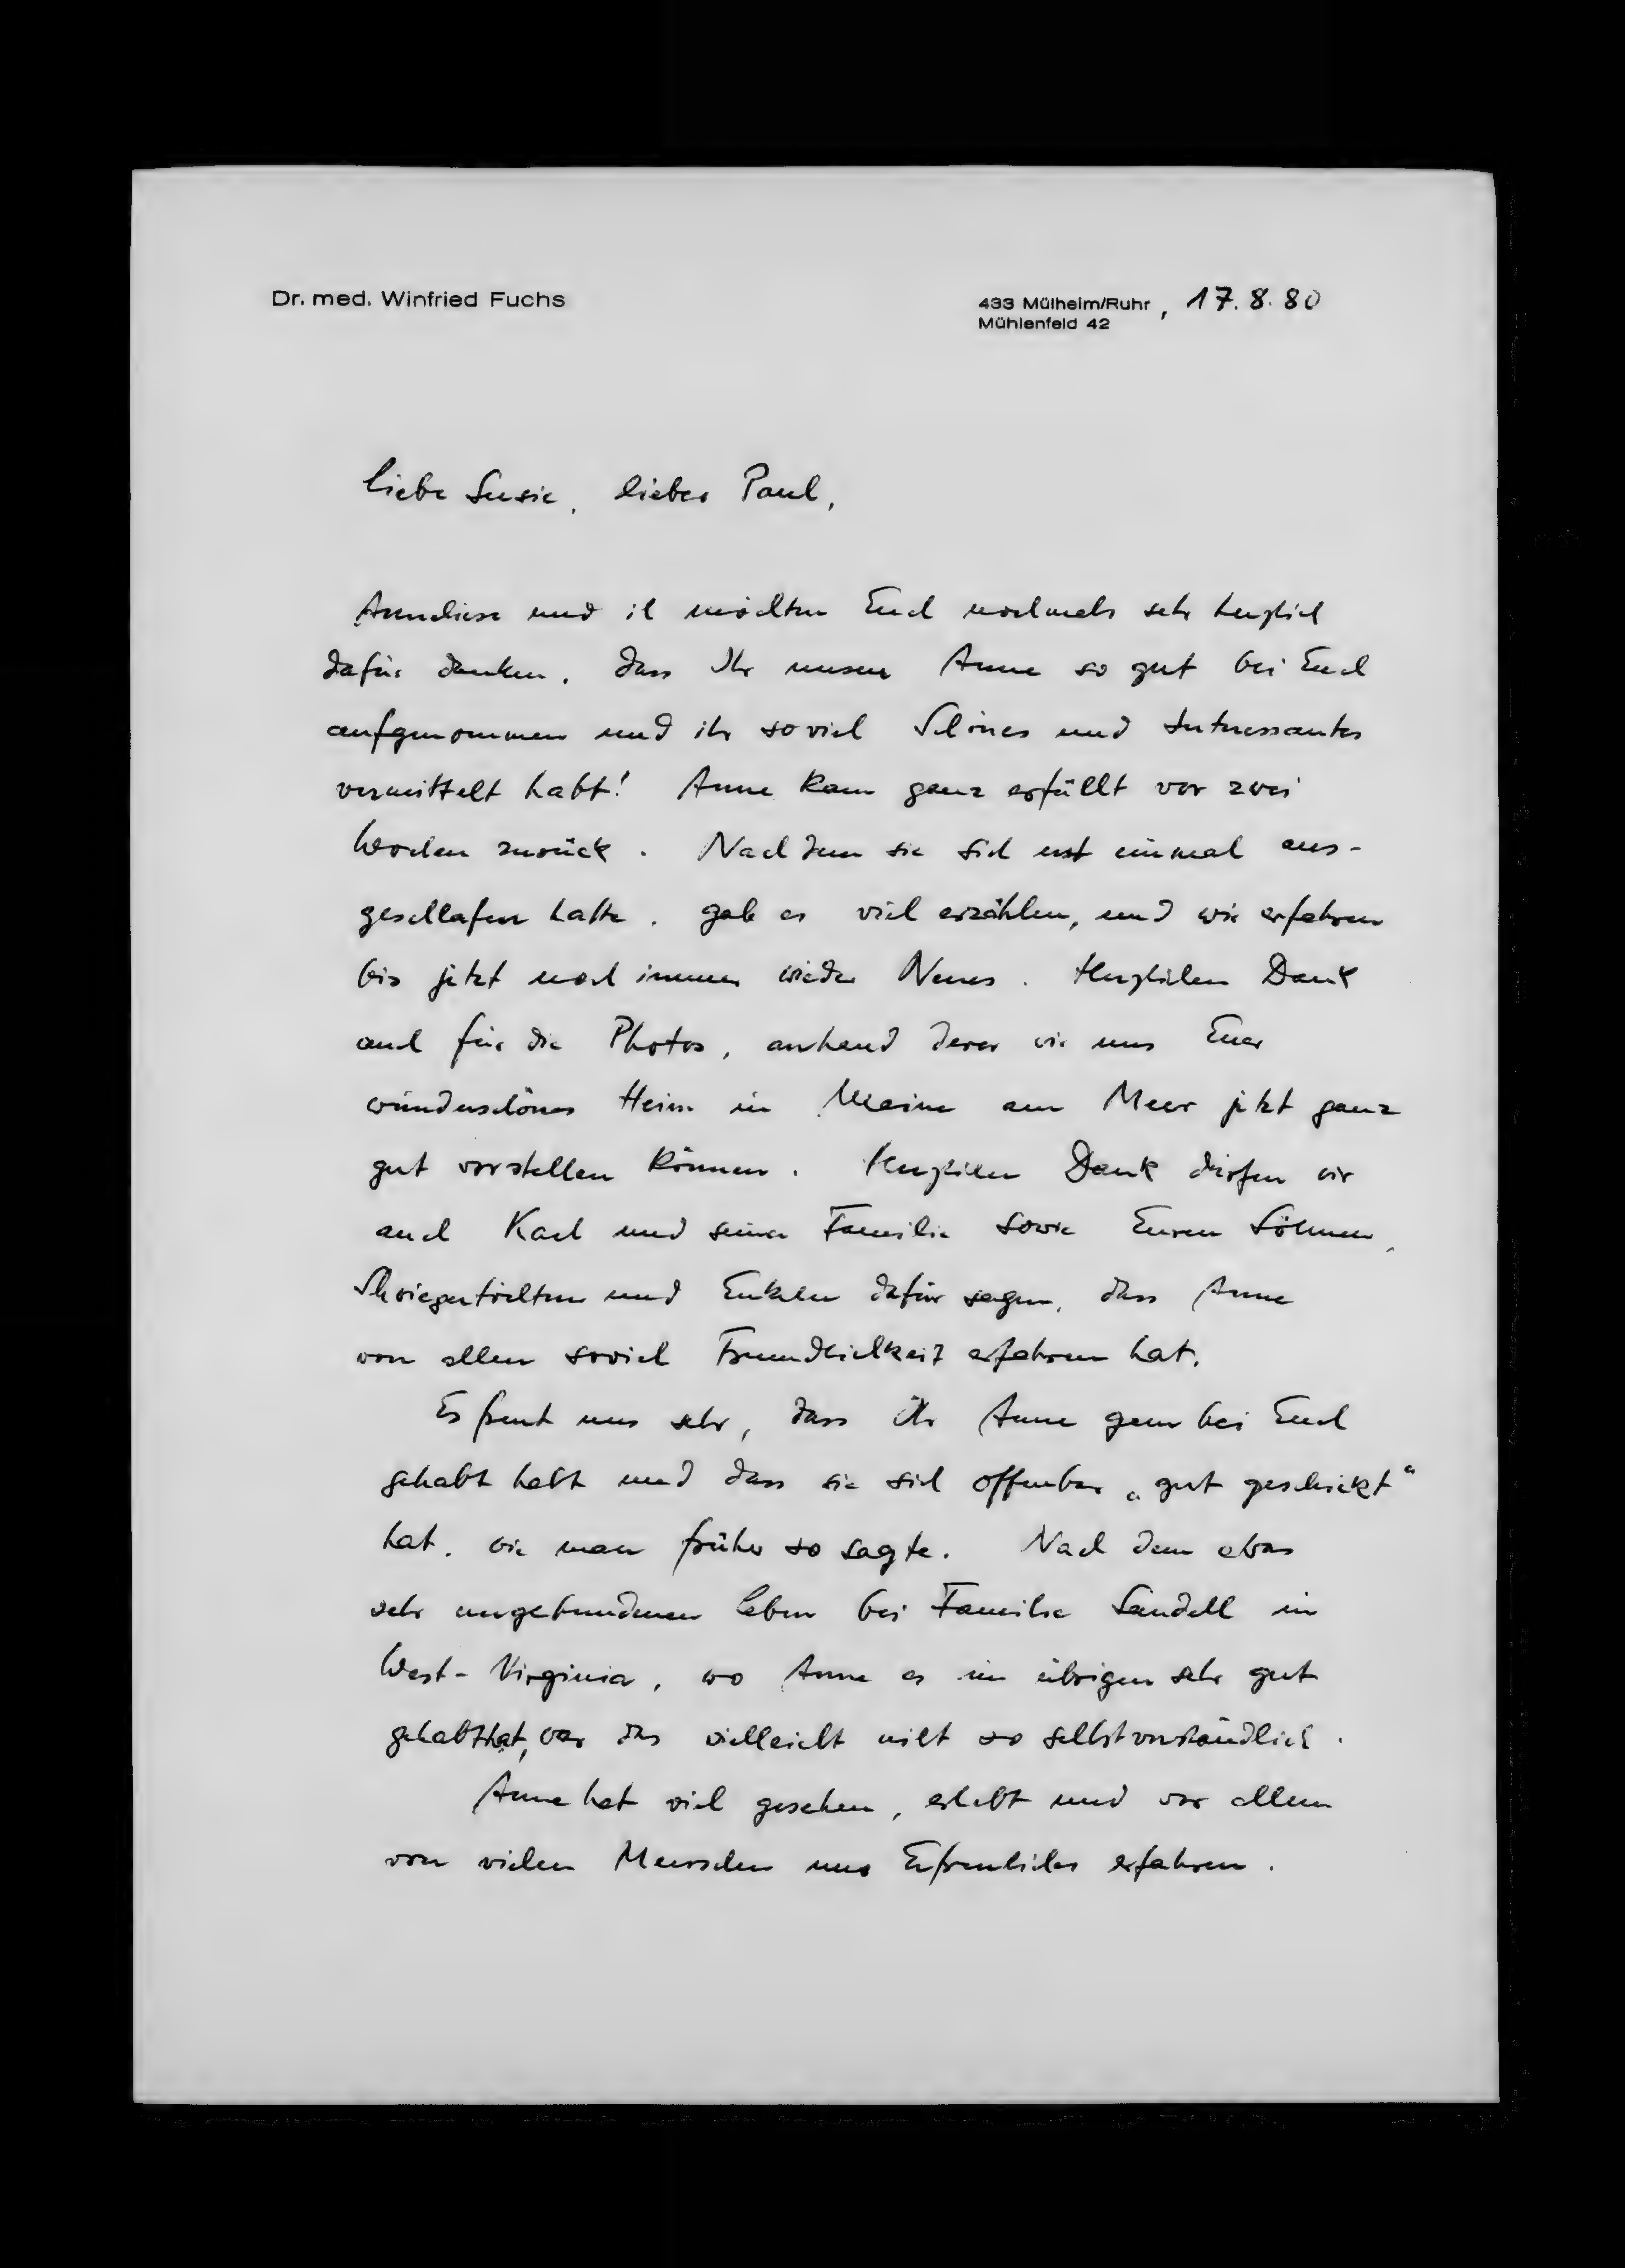 Dr. med. Winfried Fuchs
433 Mülheim/Ruhr, 17.8.80
Mühlenfeld 42
Liebe Susie, lieber Paul,
Anneliese und ich möchten Euch nochmals sehr herzlich
dafür danken, dass Ihr unsere Anne so gut bei Euch
aufgenommen und ihr soviel Schönes und Interessantes
vermittelt habt! Anne kam ganz erfüllt vor zwei
Wochen zurück. Nachdem sie sich erst einmal aus-
geschlafen hatte, gab es viel erzählen, und wir erfahren
bis jetzt noch immer wieder Neues. Herzlichen Dank
auch für die Photos, anhand derer wir uns Euer
wunderschönes Heim in Maine am Meer jetzt ganz
gut vorstellen können. Herzlichen Dank dürfen wir
auch Karl und seiner Familie sowie Euren Söhnen,
Schwiegertöchtern und Enkeln dafür sagen, dass Anne
von allen soviel Freundlichkeit erfahren hat.
Es freut uns sehr, dass Ihr Anne gern bei Euch
gehabt habt und dass sie sich offenbar „gut geschickt“
hat, wie man früher so sagte. Nach dem etwas
sehr ungebundenen Leben bei Familie Sandell in
West-Virginia, wo Anne es im übrigen sehr gut
gehabt hat, war das vielleicht nicht so selbstverständlich.
Anne hat viel gesehen, erlebt und vor allem
von vielen Menschen nur Erfreuliches erfahren.